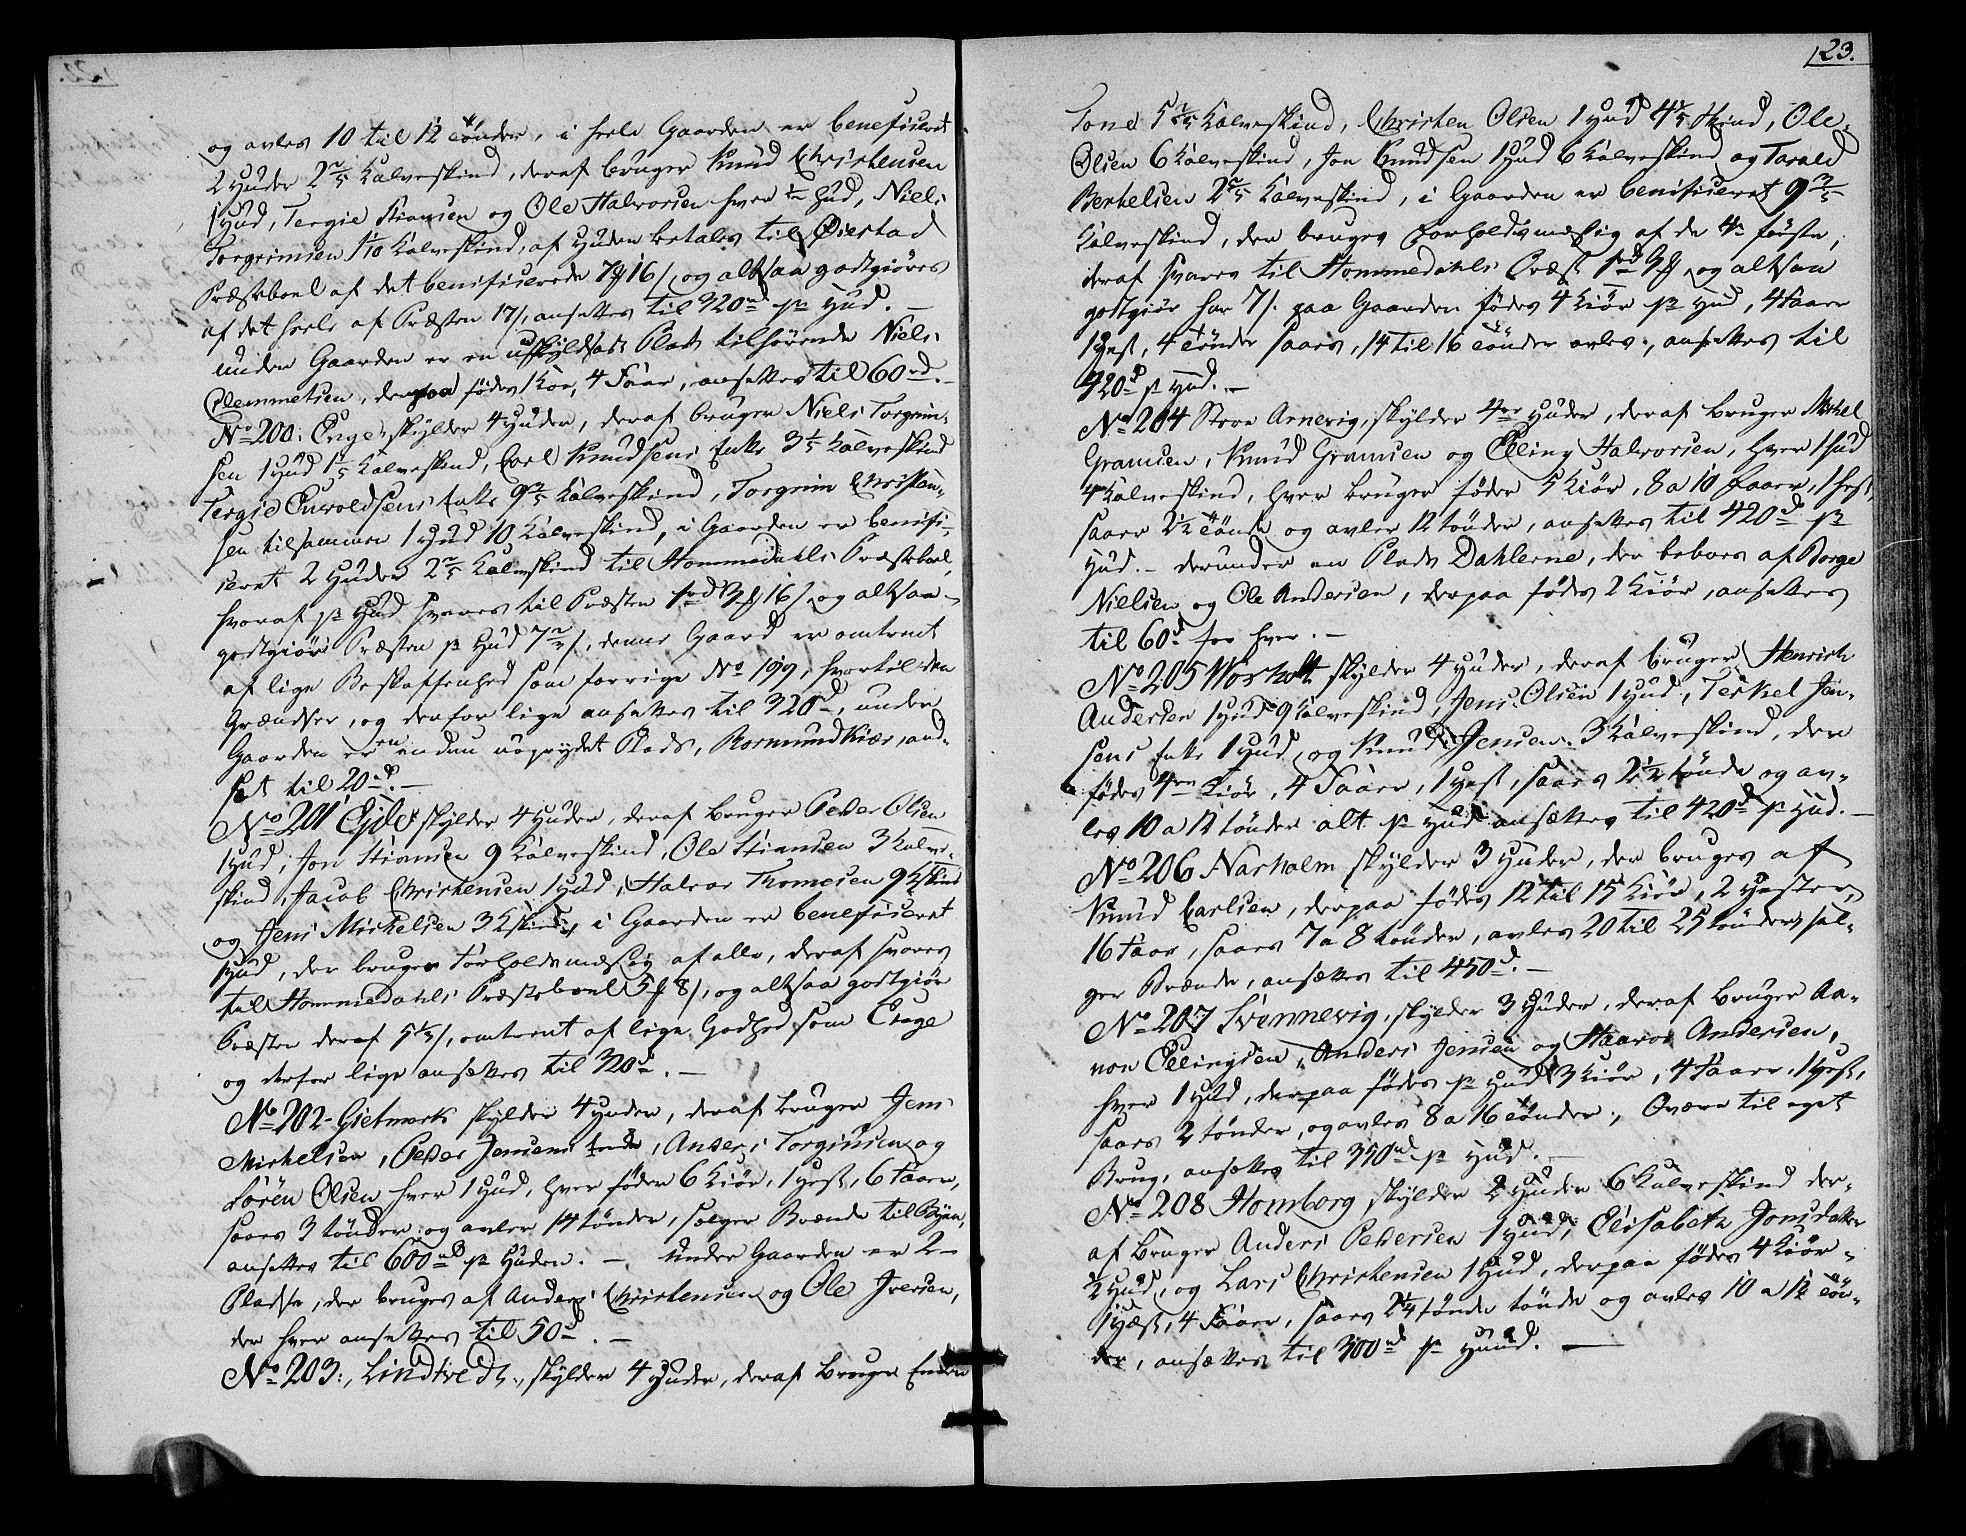 og avles 10 til 12 tönder, i heele Gaarden er beneficeret
2 Huder 2 2/5 Kalveskind, deraf bruger Knud Christensen
1 Hud, Tergie Stiansen og Ole Halvorsen hver ½ Hud, Niels
Torgrimsen 1/10 Kalveskind, af Huden betales til Øiestad
Præsteboel af det benificerede 16 s, og altsaa godtgiöres
af det heele af Præsten 17 s, ansettes til 320 rd pr Hud. –
unden Gaarden er en uskyldsat Plads tilhörende Niels
Clemmetsen, derpaa födes 1 Koe, 4 Faar, ansettes til 60 rd. –
No 200: Enge skylder 4 Huder, deraf bruger Niels Torgrim-
sen 1 Hud 1 1/5 Kalveskind, Carl Knudsens Enke 3 1/5 Kalveskind
Tergie Enke 9 3/5 Kalveskind, Torgrim Christian-
sen tilsammen 1 Hud 10 Kalveskind, i Gaarden er benifi-
ceret 2 Huder 2 2/5 Kalveskind til Hommedahls Præsteboel,
hvoraf pr Hud svares til Præsten 16 s og altsaa
godtgiör Præsten pr Hud 7 s, denne Gaard er omtrent
af lige Beskaffenhed som forrige No 199, hvortil den
Grændser, og derfor lige ansettes til 320 d, under
Gaarden er en endnu uopryddet Plads, Rormundkiær, and-
sat til 20 rd. –
No 201 Eide skylder 4 Huder, deraf bruger Peder Olsen
1 Hud, Jon Stiansen 9 Kalveskind, Ole Stiansen 3 Kalve-
skind, Jacob Christensen 1 Hud, Halvor Thomesen 9 Kskind
og Jens Michelsen 3 Kskind, i Gaarden er beneficeret
1 Hud, der bruges forholdsmæssig af alle, deraf svares
til Hommedahls Præsteboel 8 s, og altsaa godtgiör
Præsten deraf 5 1/3 s, omtrent af lige Godhed som Enge
og derfor lige ansettes til 320 d. –
No 202 Gietmork skylder 4 Huder, deraf bruger Jens
Michelsen, Peder Jensens Enke, Anders Torgiusen og
Sören Olsen hver 1 Hud, hver föder 6 Kiör, 1 Hest, 6 Faar,
saaes 3 tönder og avler 14 tönder, sælger Brænde til Byen,
ansettes til 600 rd pr Huden. – Under Gaarden er 2
Pladse, der bruges af Anders Christensen og Ole Iversen,
der hver ansettes til 50 d. –
No 203: Lindtvedt, skylder 4 Huder, deraf bruger Enken
123.
Tone 5 2/5 Kalveskind, Christen Olsen 1 Hud 4 4/5 Skind, Ole
Olsen 6 Kalveskind, Jon Knudsen 1 Hud 6 Kalveskind og Tarald
Berthelsen 2 2/5 Kalveskind, i Gaarden er benificeret 9 3/5
Kalveskind, der bruges forholdsmæssig af de 4re förste,
deraf svares til Hommedahls Præst og altsaa
godtgiör har 7 s. paa Gaarden födes 4 Kiör pr Hud, 4 Faar
1 Hest, 4 tönder saaes, 14 til 16 tönder avles, ansettes til
420 d pr Hud. –
No 204 Store Arnevig, skylder 4re Huder, deraf bruger Mickel
Gramsen, Knud Gramsen og Elling Halvorsen, hver 1 Hud
4 Kalveskind, hver bruger föder 5 Kiör, 8 a 10 Faar, 1 Hest,
saaer 2½ tönde og avler 12 tönder, ansettes til 420 d pr
Hud. – derunder en Plads Dahlerne, der beboes af Borge
Nielsen og Ole Andersen, derpaa födes 2 Kiör, ansettes
til 60 d for hver. –
No 205 Morholt skylder 4 Huder, deraf bruger Henrich
Andersen 1 Hud 9 Kalveskind, Jens Olsen 1 Hud, Terkel Jen-
sens Enke 1 Hud, og Knud Jensen 3 Kalveskind, der
födes 4re Kiör, 4 Faar, 1 Hest, saaes 2½ tönde og av-
les 10 a 12 tönder alt pr Hud ansættes til 420 d pr Hud. –
No 206 Narholm skylder 3 Huder, der bruges af
Knud Carlsen, derpaa födes 12 til 15 Kiör, 2 Hester,
16 Faar, saaes 7 a 8 tönder, avles 20 til 25 tönder, sæl-
ger Brænde, ansættes til 450 d. –
No 207 Svennevig, skylder 3 Huder, deraf bruger Aa-
non Ellingsen, Anders Jensen og Haavor Andersen,
hver 1 Hud, derpaa födes pr Hud 3 Kiör, 4 Faar, 1 Hest,
saaes 2 tönder, og avles 8 a 16 tönder, Qværn til eget
Brug, ansættes til 350 rd pr Hud. –
No 208 Homborg skylder 2 Huder 6 Kalveskind der-
af bruger Anders Pedersen 1 Hud, Elisabeth Jonsdatter
½ Hud, og Lars Christensen 1 Hud, derpaa födes 4 Kiör
1 Hæst, 4 Faar, saaes 2¼ tönde tönde og avles 10 a 12 tön-
der, ansættes til 300 rd pr Huud. –